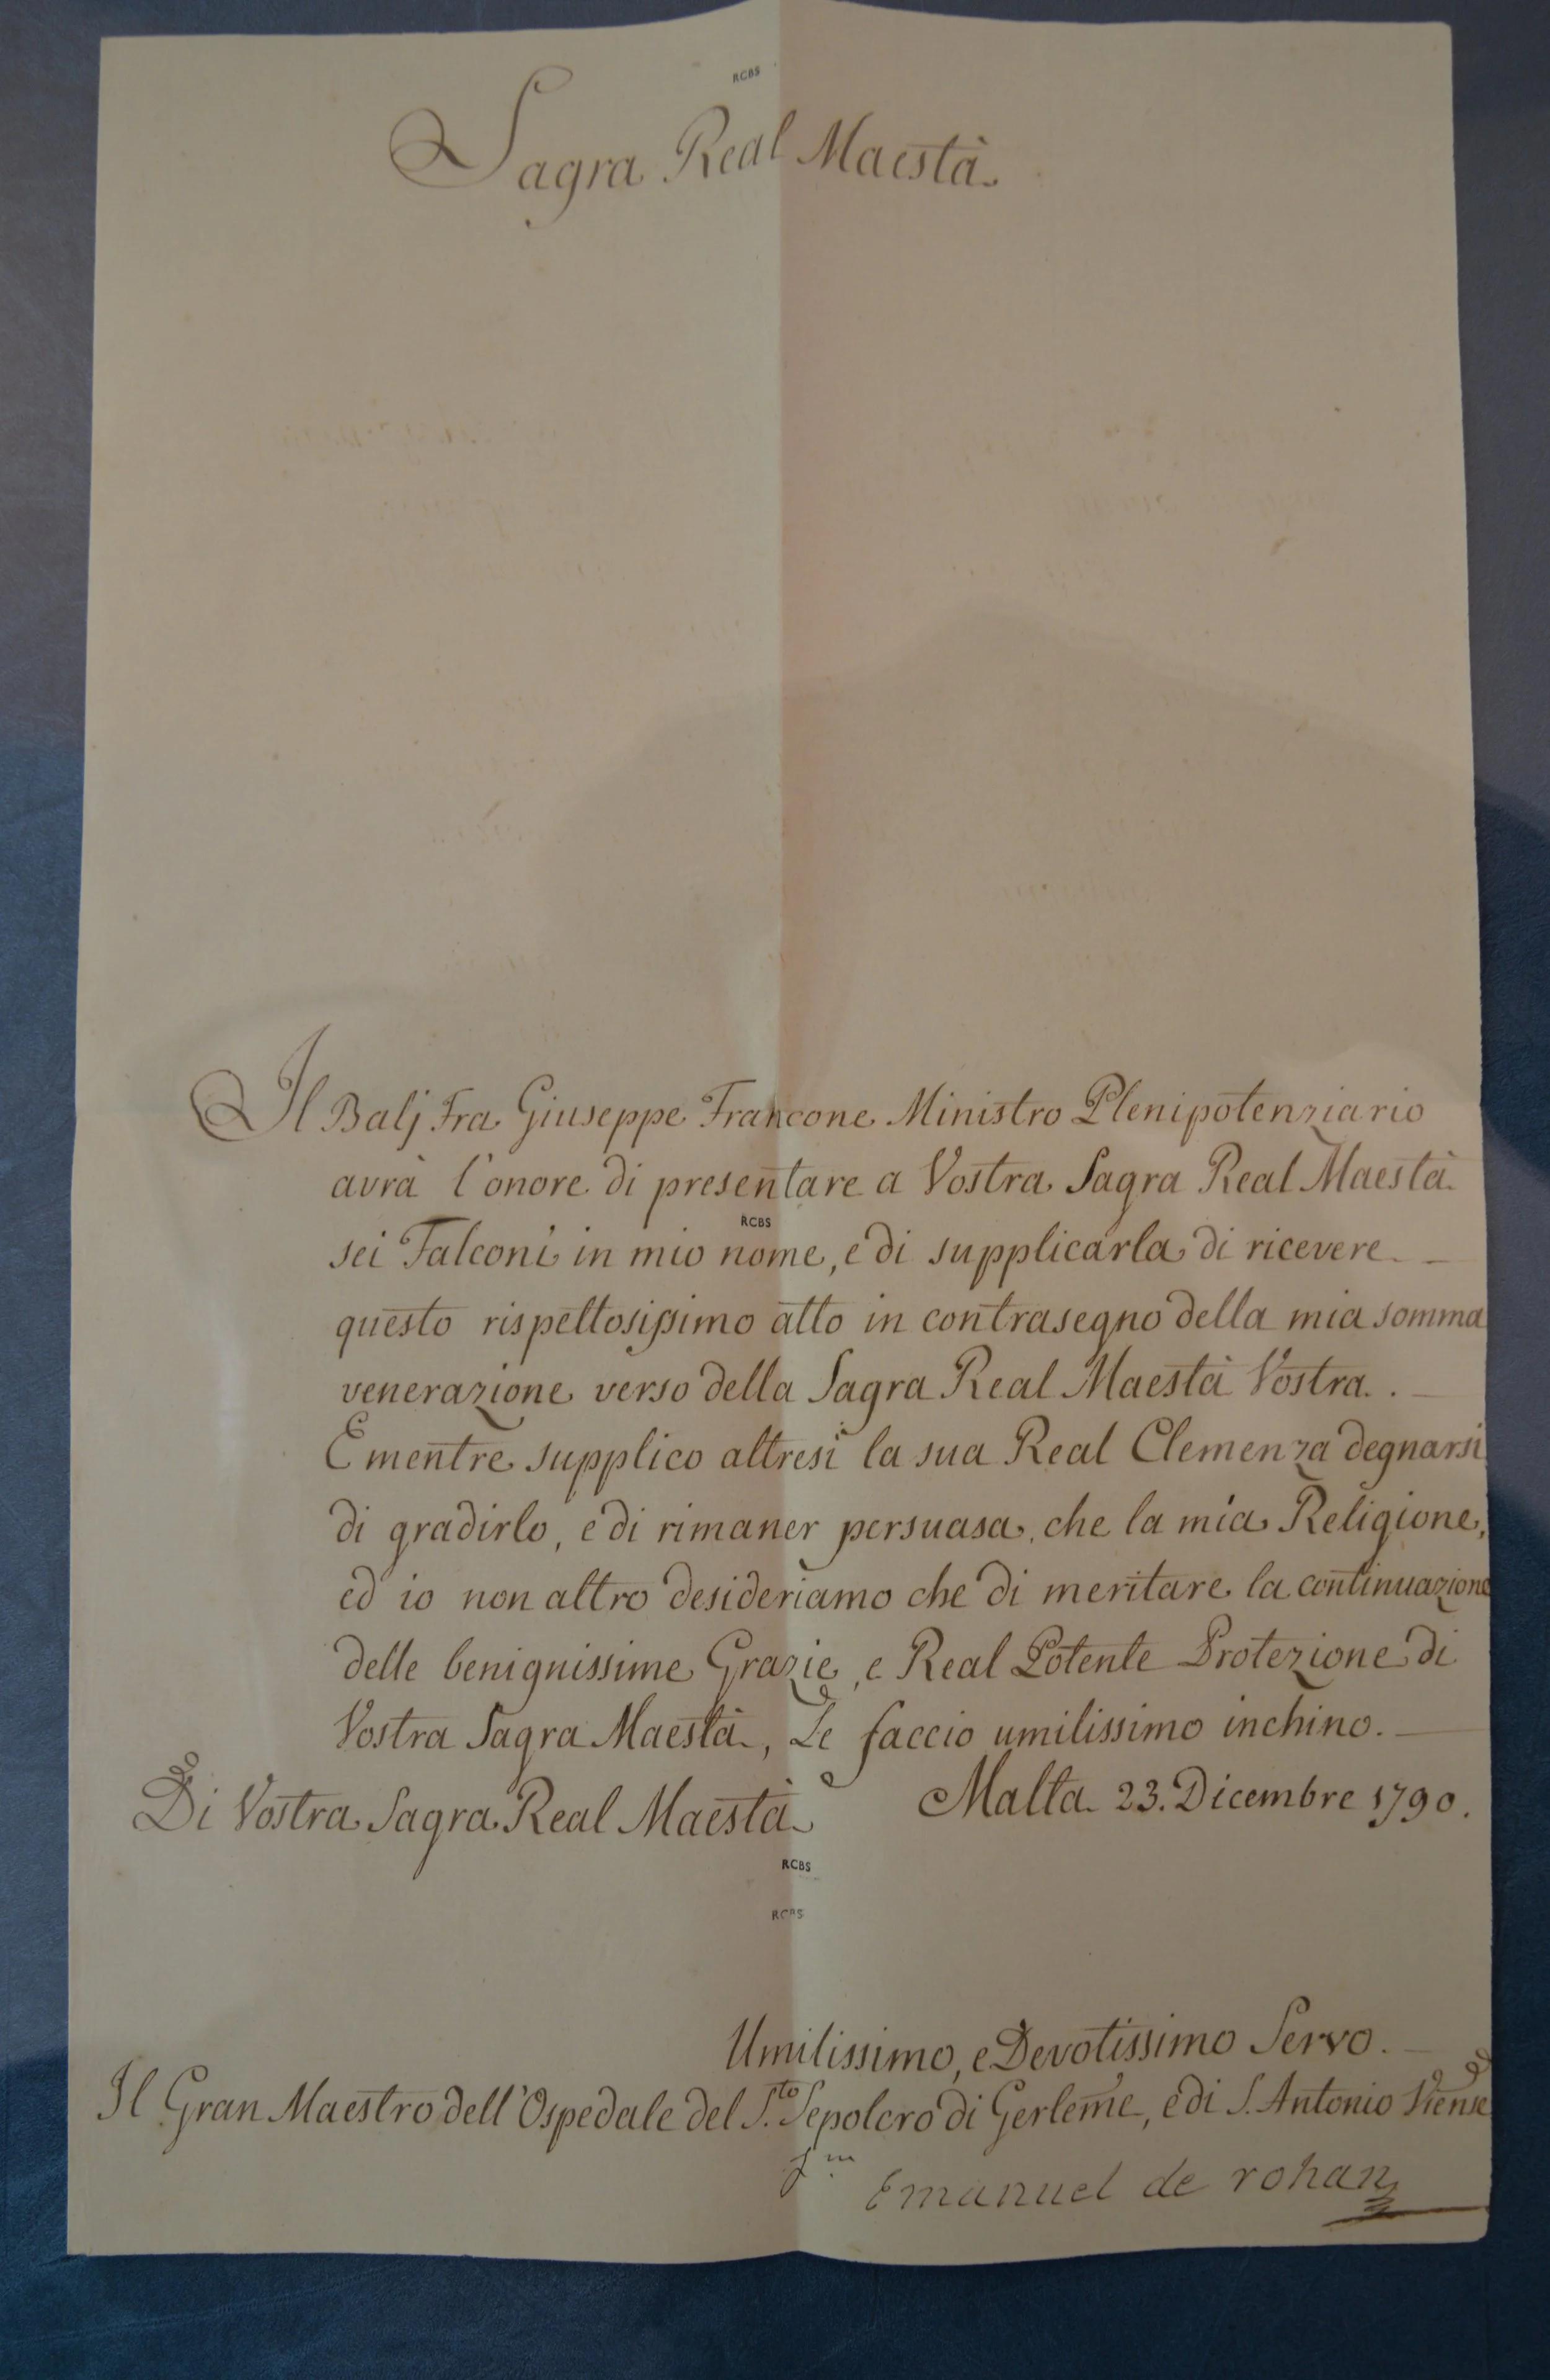 RCBS
Sagra Real Maestà
Il Balj Fra Giuseppe Francone Ministro Plenipotenziario
avrà l'onore di presentare a Vostra Sagra Real Maestà
RCBS
sei Falconi in mio nome, e di supplicarla di ricevere
questo rispettosissimo atto in contrasegno della mia somma
venerazione verso della Sagra Real Maestà Vostra.
E mentre supplico altresì la sua Real Clemenza degnarsi
di gradirlo, e di rimaner persuasa, che la mia Religione,
ed io non altro desideriamo che di meritare la continuazione
delle benignissime Grazie, e Real Potente Protezione di
Vostra Sagra Maestà, Le faccio umilissimo inchino.
Di Vostra Sagra Real Maestà Malta 23. Dicembre 1790.
RCBS
RCBS
Umilissimo, e Devotissimo Servo.
Il Gran Maestro dell'Ospedale del S.to Sepolcro di Gerleme, e di S. Antonio Viense
Emanuel de rohan